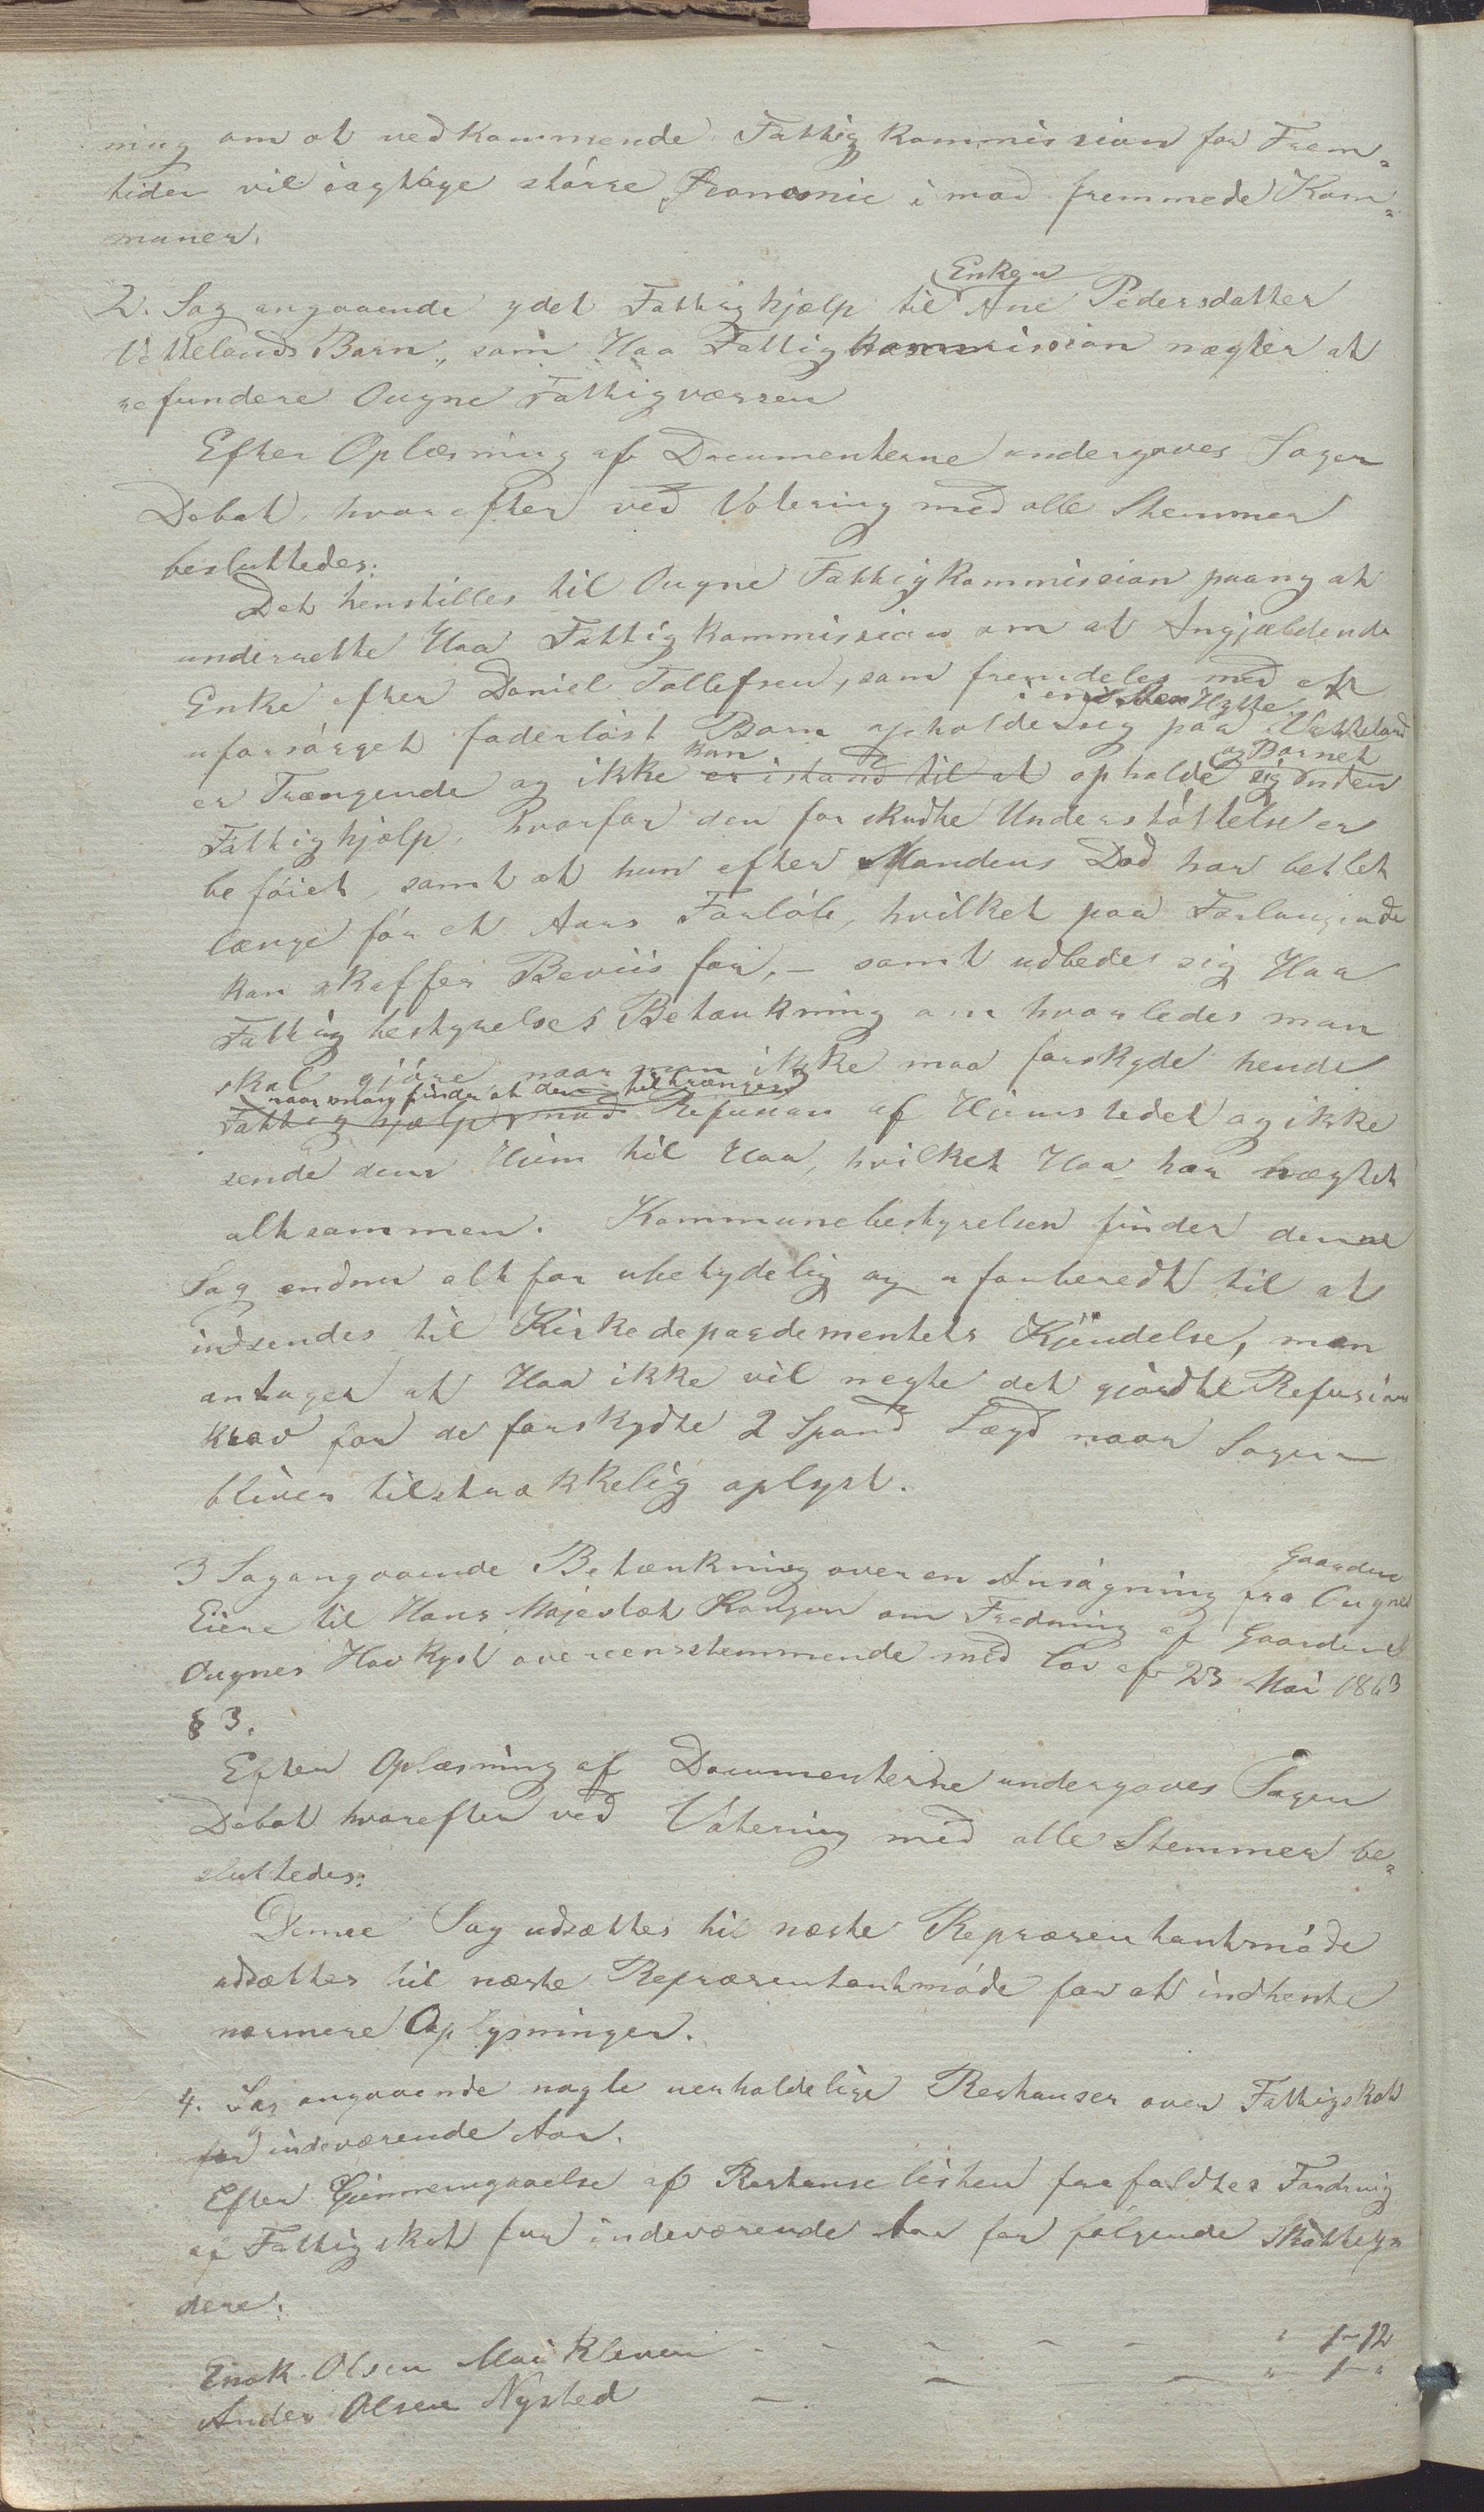 ning om at vedkommende Fattigkommission for Frem-
tiden vil iagttage större Économie imod fremmede Kom-
muner.
2. Sag angaaende ydet Fattighjælp til Enken Ane Pedersdatter
Vettelands Barn, som Haa Fattigkommission nægter at
refundere Ougne Fattigvæsen
Efter Oplæsning af Documenterne undergaves Sagen
Debat, hvorefter ved Votering med alle Stemmer
besluttedes:
Det henstilles til Ougne Fattigkommission paany at
underrette Haa Fattigkommission om at Angjældende
Enke efter Daniel Tollefsen, som fremdeles med et
i en Hytte
uforsörget faderlöst Barn opholder sig paa Vetteland
kan og Barnet
er Trængende og ikke er istand til at opholde sig uden
Fattighjælp, hvorfor den forskudte Understöttelse er
beföiet, samt at hun efter Mandens Död har betlet
længe för et Aars Forlöb, hvilket paa Forlangende
kan skaffes Beviis for, – samt udbedes sig Haa
Fattigbestyrelses Betænkning om hvorledes man
skal gjöre naar man ikke maa forskyde hende
naar man finder at den tiltrænges
Fattighjælp mod Refusion af Hiemstedet og ikke
sende dem Hiem til Haa, hvilket Haa har nægtet
altsammen. Kommunebestyrelsen finder denne
Sag endnu alt for ubetydelig og uforberedt til at
indsendes til Kirkedepardementets Kjendelse, man
antager at Haa ikke vil negte det gjordte Refusions
krav for de forskydte 2 Spand Lægd naar Sagen
bliver tilstrækkelig oplyst.
3 Sag angaaende Betænkning over en Ansögning fra Gaarden Ougnes
Eiere til Hans Majestæt Kongen om Fredning af Gaarden
Ougnes Havkyst overeensstemmende med Lov af 23 Mai 1863
§ 3.
Efter Oplæsning af Documenterne undergaves Sagen
Debat hvorefter ved Votering med alle Stemmer be-
sluttedes:
Denne Sag udsættes til næste Repræsentantmöde
udsættes til næste Repræsentantmöde for at indhente
nærmere Oplysninger.
4. Sag angaaende nogle uerholdelige Restanser over Fattigskat
for indeværende Aar.
Efter Gjennemgaaelse af Restanselisten frafaldtes Fordring
af Fattigskat for indeværende Aar for fölgende Skatteyn
dere:
Enok Olsen Mei Kleven - - - - - " 1-12
Ander Olsen Nysted - - - - " 1- "